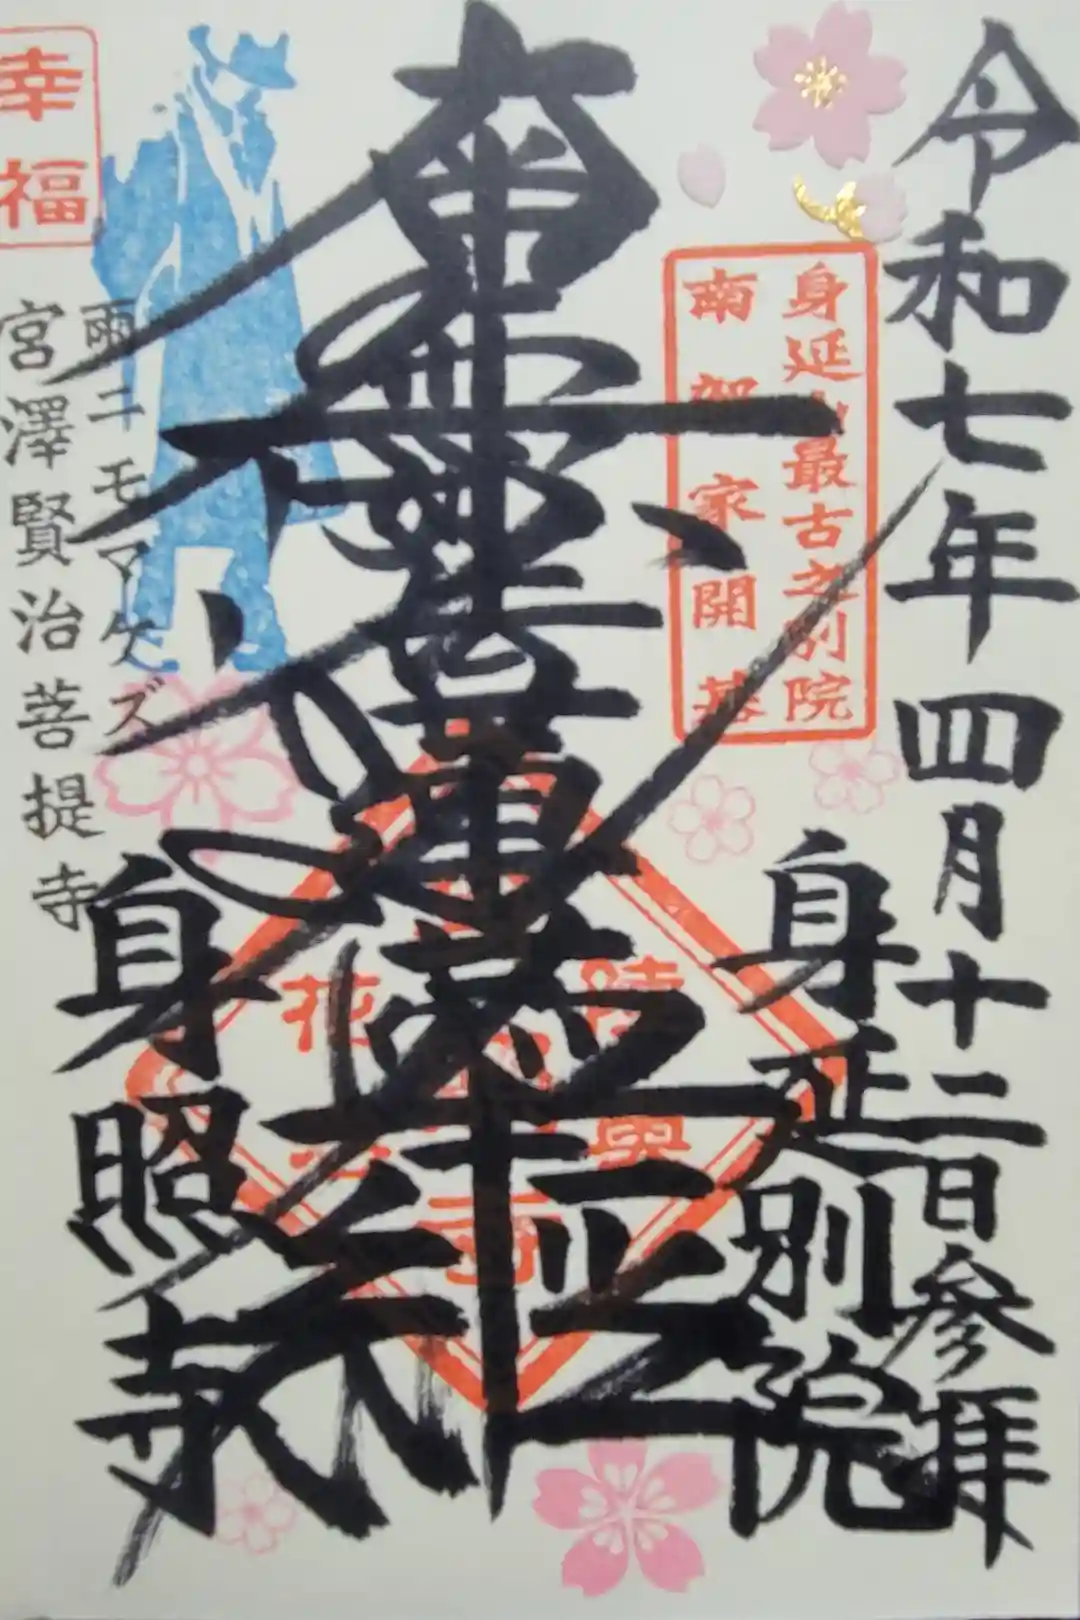 令和七年四月十二日参拝
身延別院
身延山最古之別院
南部家開基
南無妙法蓮華経
陸奥
花巻
雨ニモマケズ
宮澤賢治菩提寺
幸福
身照寺